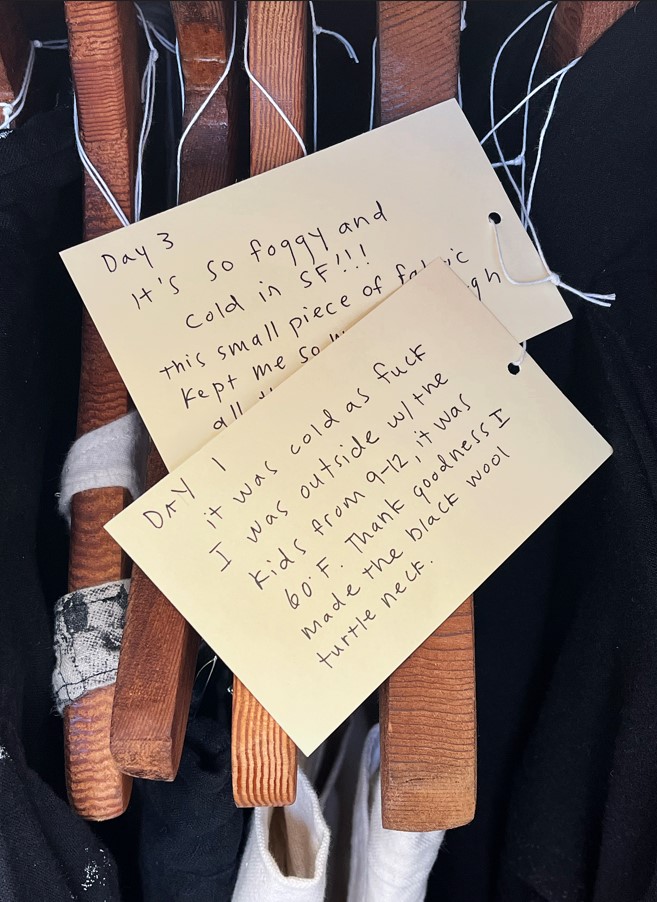 Day 3
It's so foggy and
cold in SF!!!
this small piece of fabric
kept me so
all
DAY 1
it was cold as fuck
I was outside w/ the
kids from 9-12, it was
60°F. Thank goodness I
made the black wool
turtle neck.